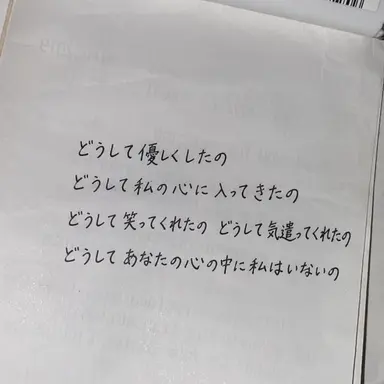 どうして優しくしたの
どうして私の心に入ってきたの
どうして笑ってくれたの どうして気遣ってくれたの
どうしてあなたの心の中に私はいないの